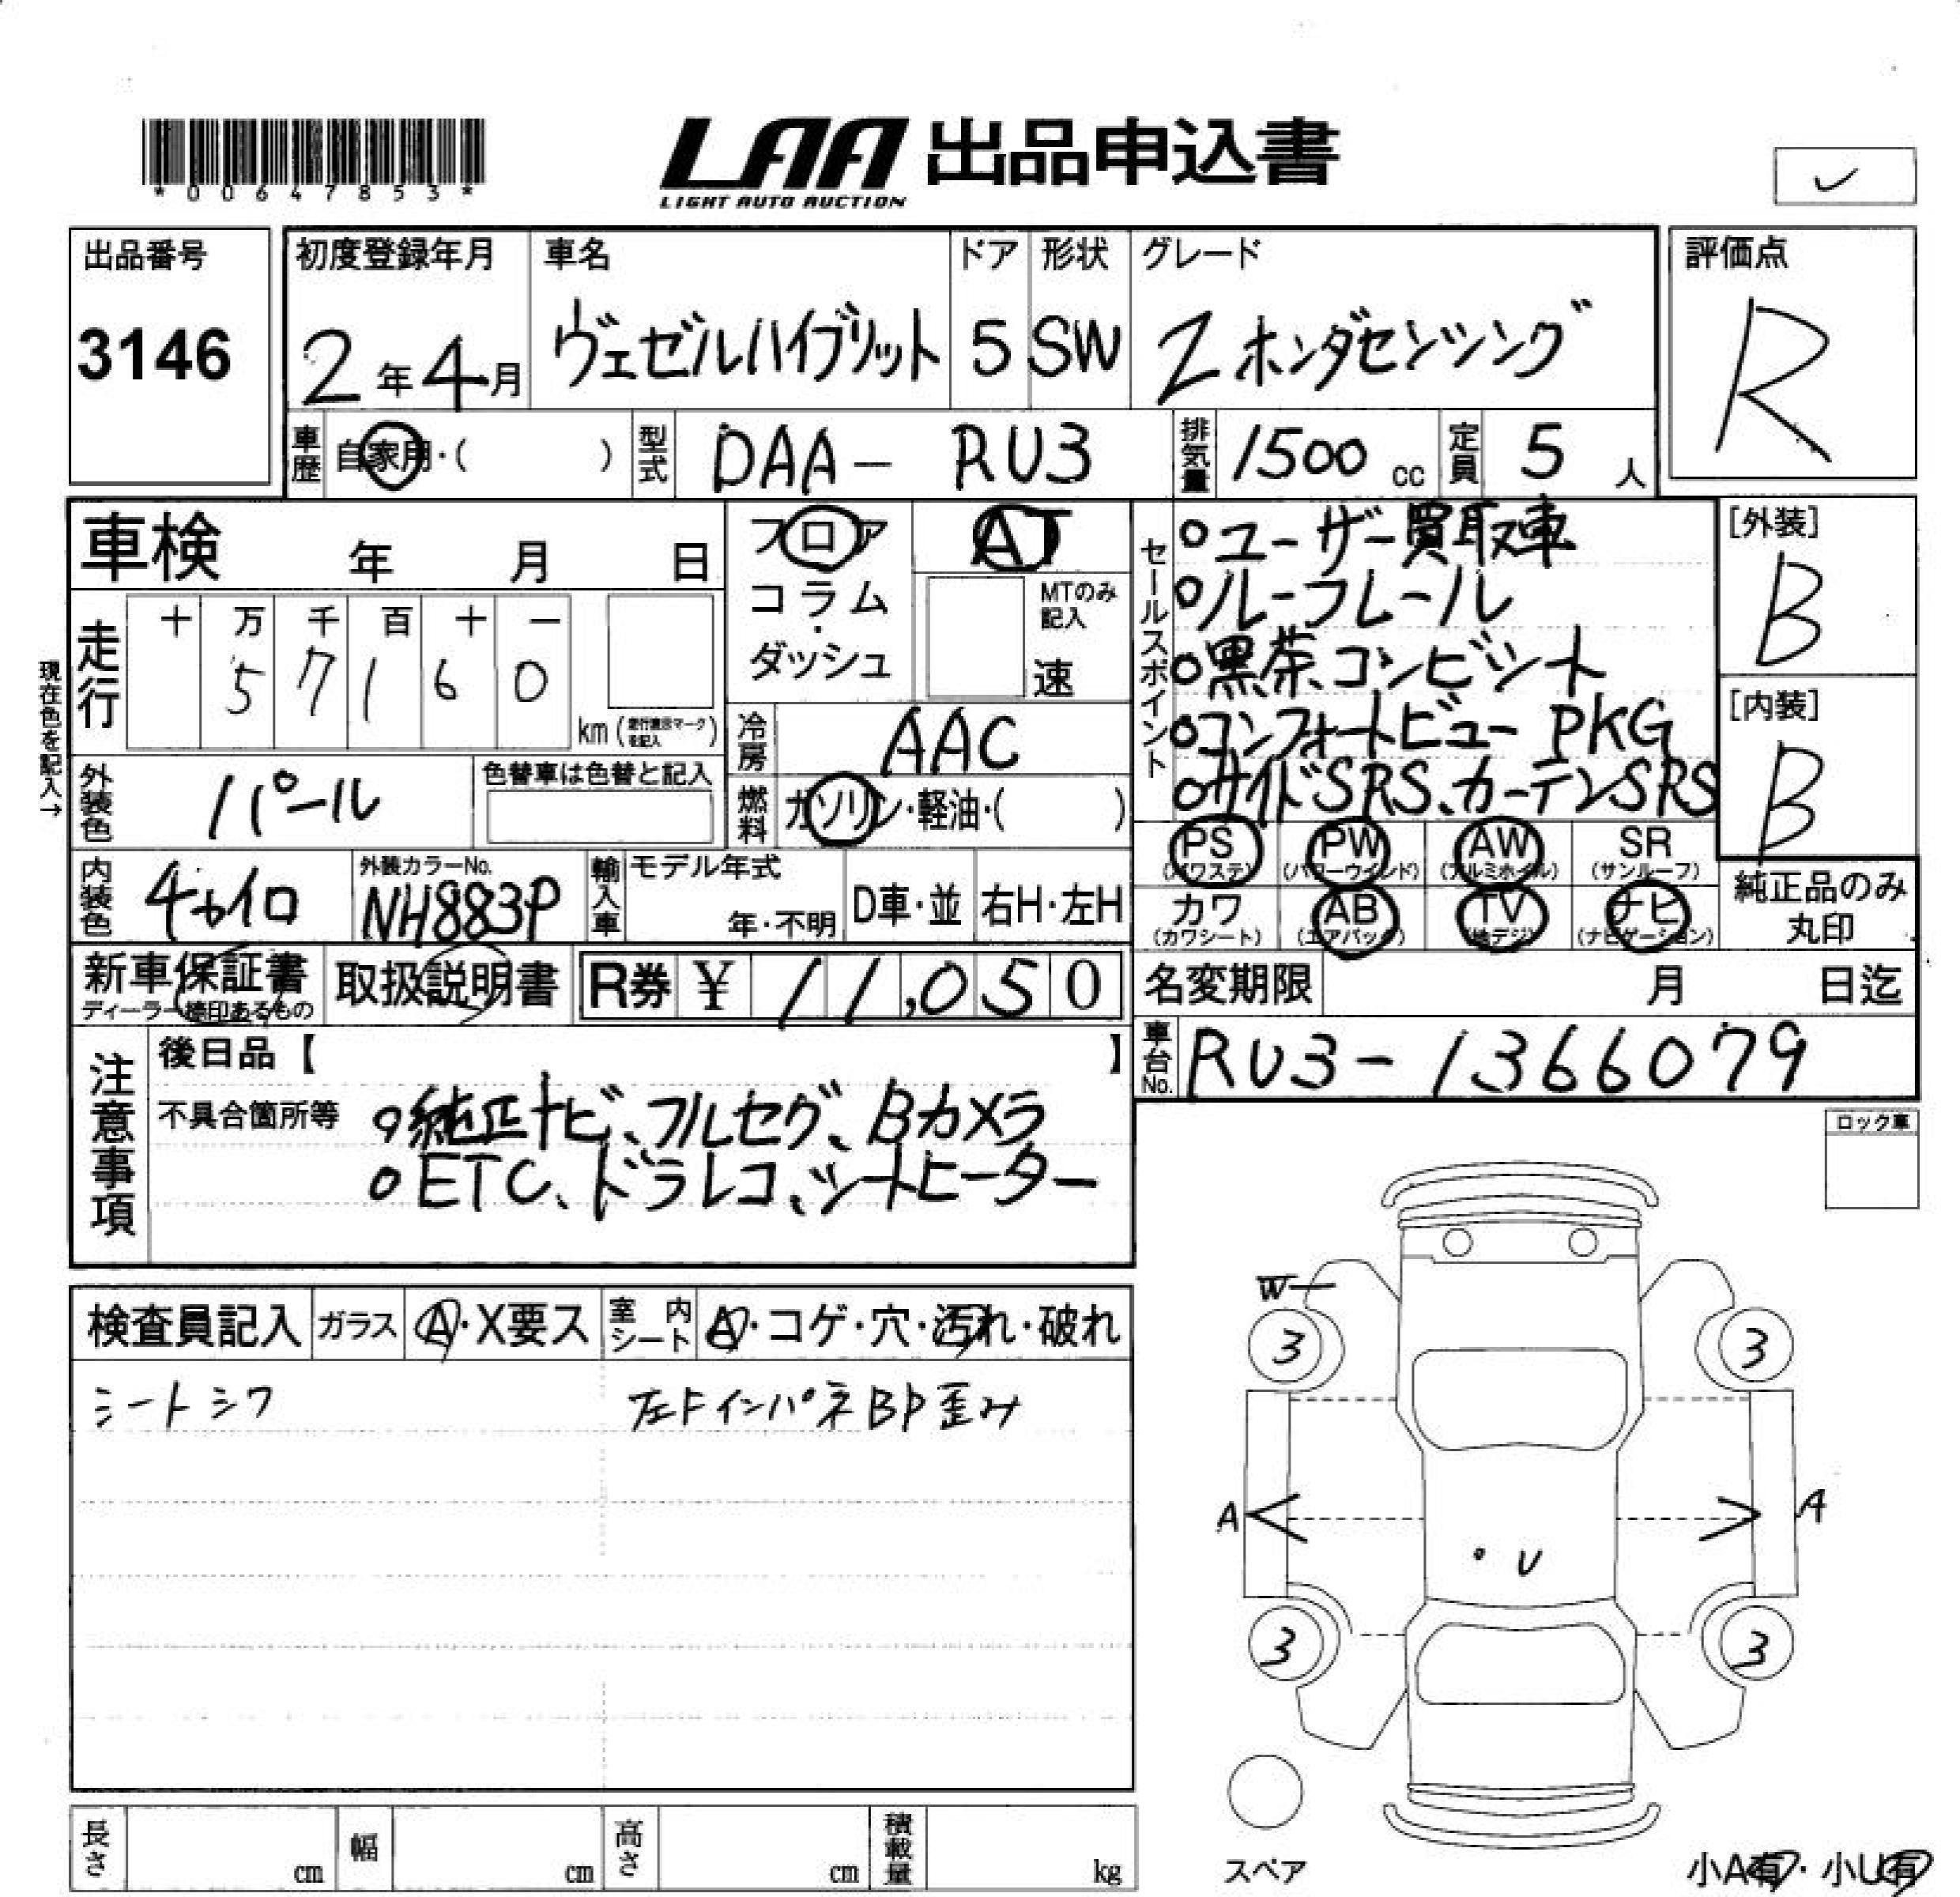 *00647853*
LAA 出品申込書
LIGHT AUTO AUCTION
出品番号 初度登録年月 車名 ドア 形状 グレード 評価点
3146 2年4月 ヴェゼルハイブリット 5 SW Z ホンダセンシング R
車歴 自家用・( ) 型式 DAA- RU3 排気量 1500cc 定員 5人
車検 年 月 日
フロア AT
コラム・ MTのみ記入
ダッシュ 速
セールスポイント
○ユーザー買取車
○ルーフレール
○黒茶コンビシート
○コンフォートビュー PKG
○サイドSRS、カーテンSRS
[外装]
B
[内装]
B
現在色を記入→
走行 十 万 千 百 十 一
5 7 1 6 0
km(走行表示マークを記入)
冷房 AAC
外装色 パール 色替車は色替と記入
燃料 ガソリン・軽油・( )
PS (パワステ) PW (パワーウインド) AW (アルミホイル) SR (サンルーフ)
内装色 チャイロ 外装カラーNo. NH883P 輸入車 モデル年式 年・不明 D車・並 右H・左H
カワ (カワシート) AB (エアバック) TV (地デジ) ナビ (ナビゲーション)
純正品のみ
丸印
新車保証書 取扱説明書 R券 ¥ 11,050
ディーラー捺印あるもの
名変期限 月 日迄
車台No. RU3-1366079
注意事項
後日品【 】
不具合箇所等 ○純正ナビ、フルセグ、Bカメラ
○ETC、ドラレコ、シートヒーター
ロック車
検査員記入 ガラス A・X要ス 室内シート A・コゲ・穴・汚れ・破れ
シートシワ 左FインパネBP歪み
W
3 3
A A
U
3 3
スペア
小A有・小U有
長さ cm 幅 cm 高さ cm 積載量 kg